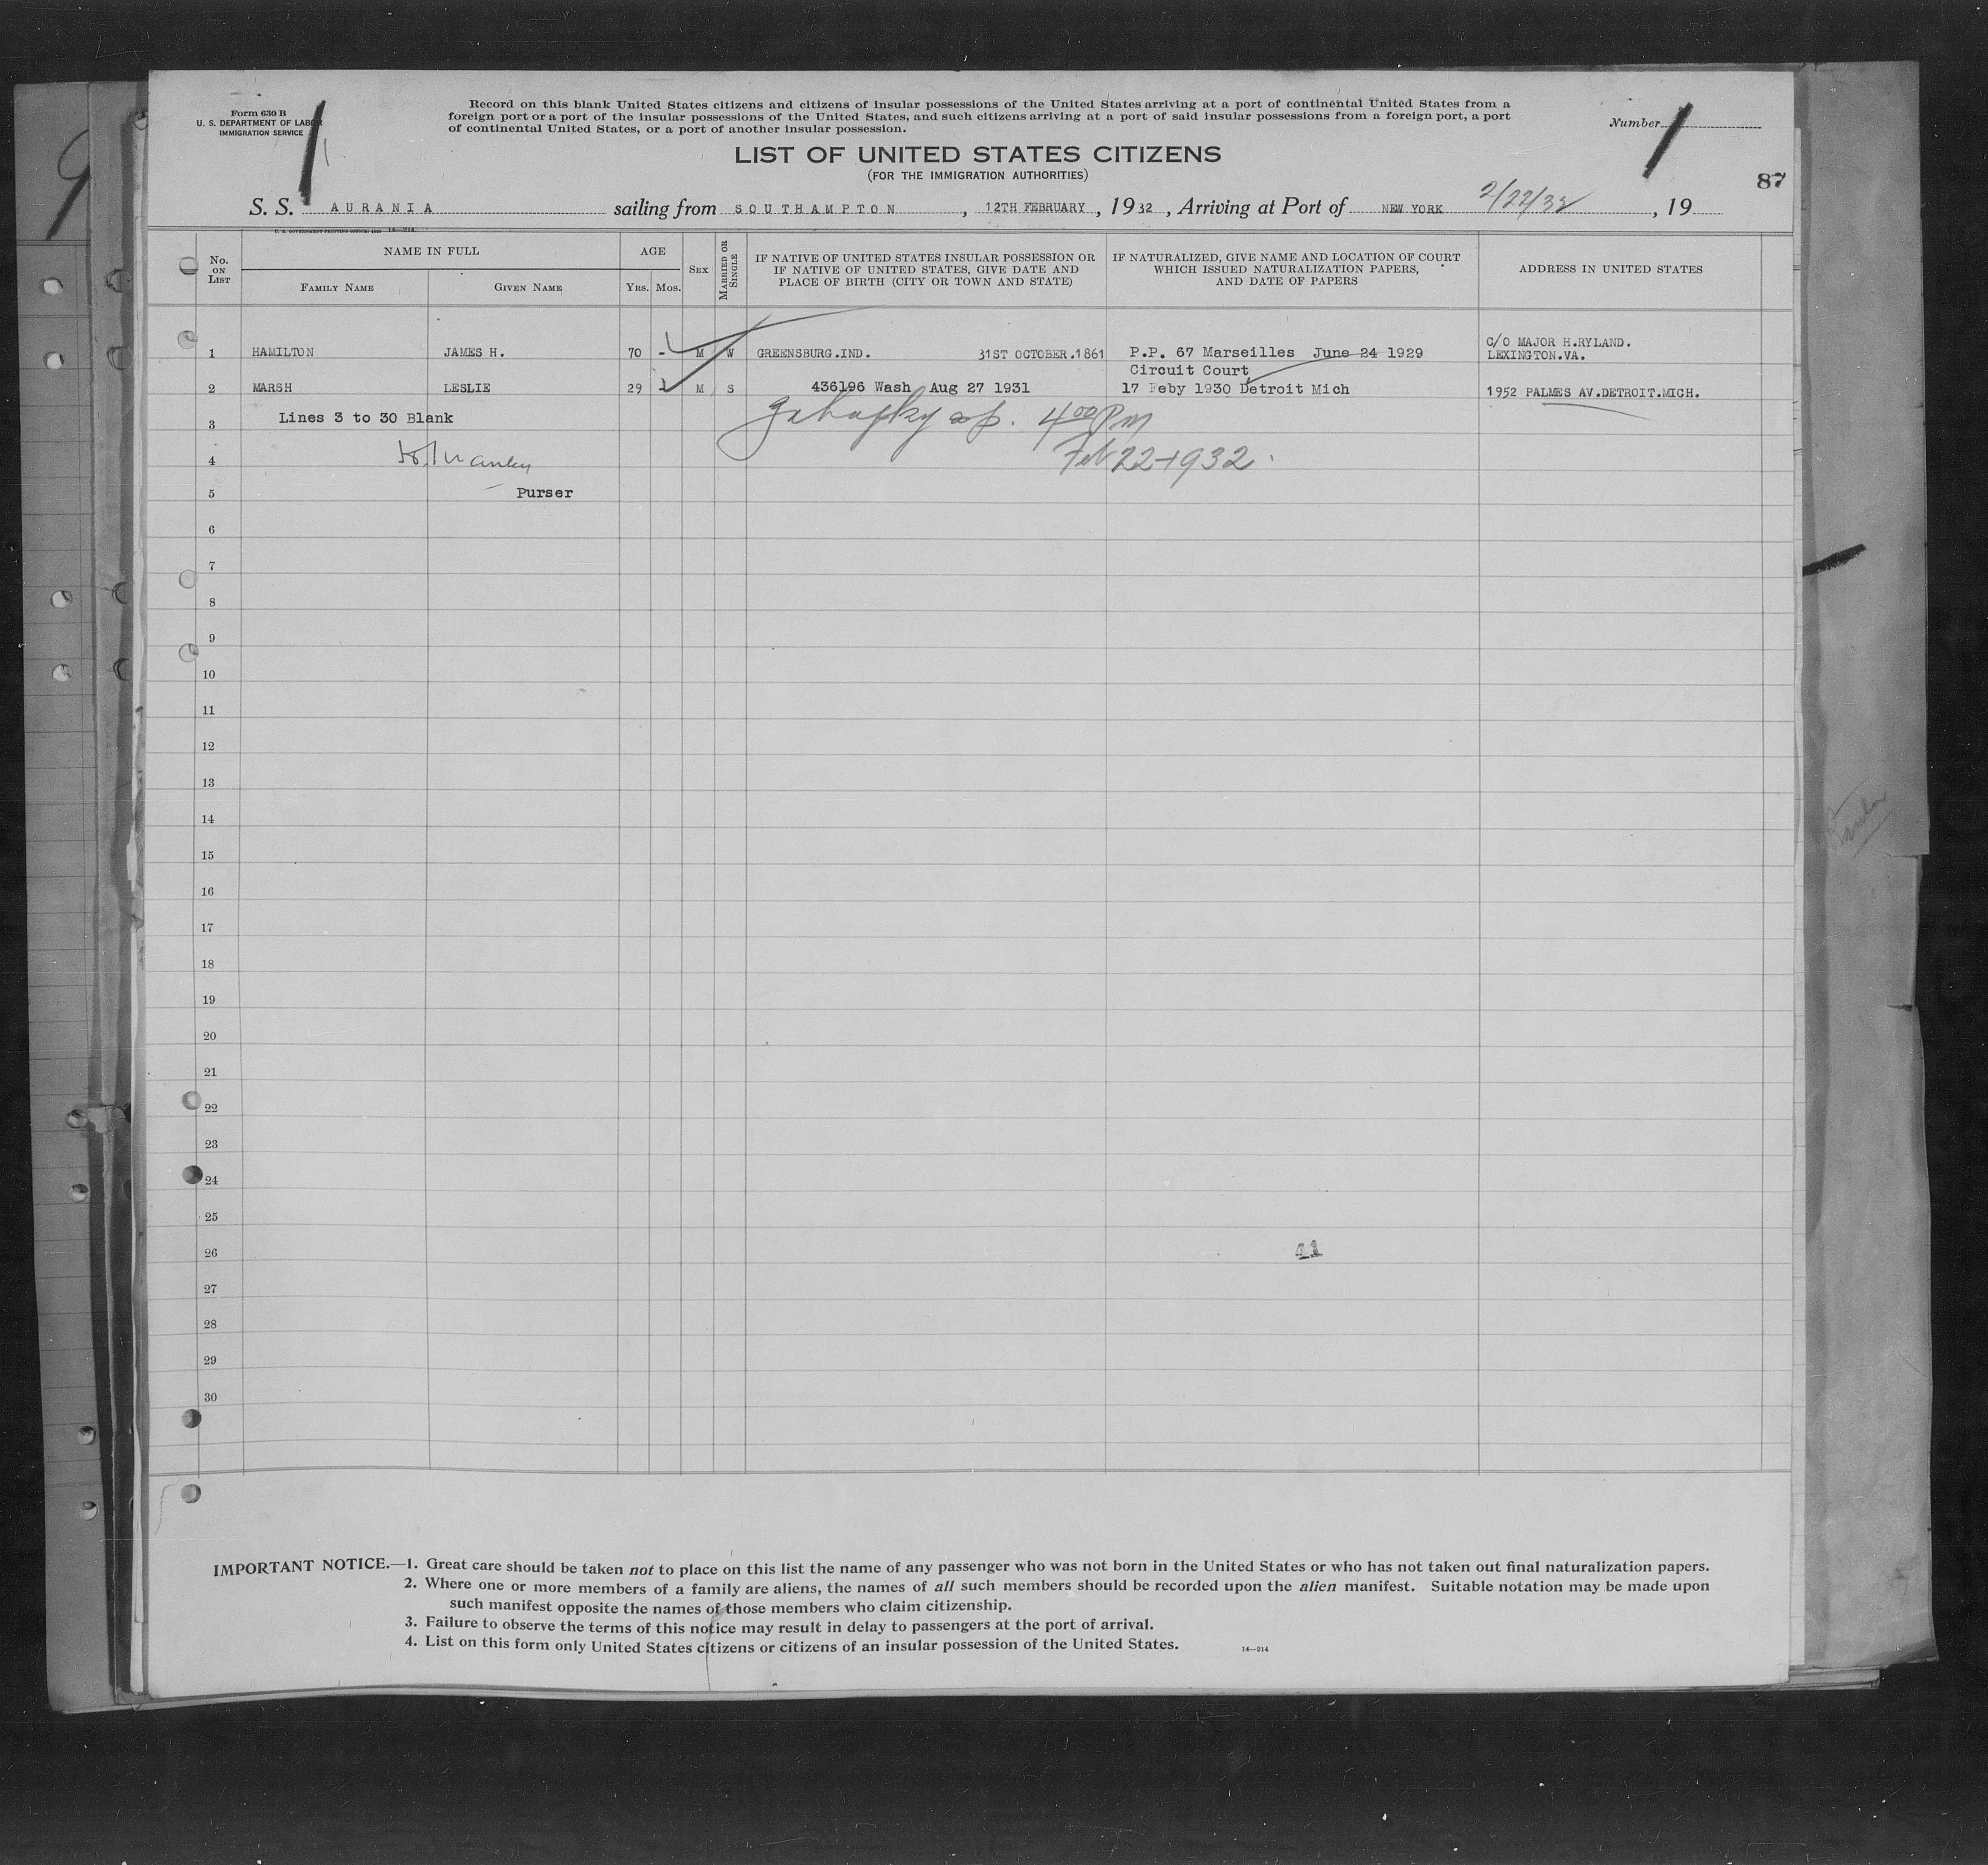 Form 630 B
U. S. DEPARTMENT OF LABOR
IMMIGRATION SERVICE
Record on this blank United States citizens and citizens of insular possessions of the United States arriving at a port of continental United States from a
foreign port or a port of the insular possessions of the United States, and such citizens arriving at a port of said insular possessions from a foreign port, a port
of continental United States, or a port of another insular possession.
Number 1
LIST OF UNITED STATES CITIZENS
(FOR THE IMMIGRATION AUTHORITIES)
87
S. S. AURANIA sailing from SOUTHAMPTON, 12TH FEBRUARY, 1932, Arriving at Port of NEW YORK 2/22/32, 19
No. ON LIST
NAME IN FULL
FAMILY NAME
GIVEN NAME
AGE
YRS. MOS.
SEX
MARRIED OR SINGLE
IF NATIVE OF UNITED STATES INSULAR POSSESSION OR
IF NATIVE OF UNITED STATES, GIVE DATE AND
PLACE OF BIRTH (CITY OR TOWN AND STATE)
IF NATURALIZED, GIVE NAME AND LOCATION OF COURT
WHICH ISSUED NATURALIZATION PAPERS,
AND DATE OF PAPERS
ADDRESS IN UNITED STATES
1 HAMILTON JAMES H. 70 - M W GREENSBURG.IND. 31ST OCTOBER.1861 P.P. 67 Marseilles June 24 1929 C/O MAJOR H.RYLAND.
LEXINGTON.VA.
Circuit Court
2 MARSH LESLIE 29 M S 436196 Wash Aug 27 1931 17 Feby 1930 Detroit Mich 1952 PALMES AV.DETROIT.MICH.
3 Lines 3 to 30 Blank 4 00 Pm
4 Feb 22-1932
5 Purser
6
7
8
9
10
11
12
13
14
15
16
17
18
19
20
21
22
23
24
25
26 41
27
28
29
30
IMPORTANT NOTICE.—1. Great care should be taken not to place on this list the name of any passenger who was not born in the United States or who has not taken out final naturalization papers.
2. Where one or more members of a family are aliens, the names of all such members should be recorded upon the alien manifest. Suitable notation may be made upon
such manifest opposite the names of those members who claim citizenship.
3. Failure to observe the terms of this notice may result in delay to passengers at the port of arrival.
4. List on this form only United States citizens or citizens of an insular possession of the United States.
14—214